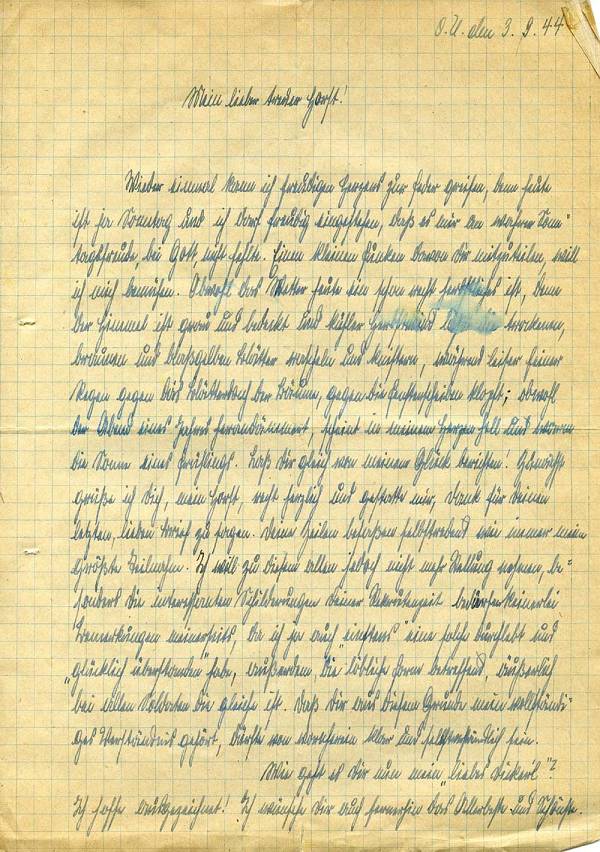 O.U. den 3. 9. 44
Mein lieber Bruder Horst!
Wieder einmal kann ich freudigen Herzens zur Feder greifen, denn heute
ist ja Sonntag und ich darf freudig eingestehen, daß es mir an wahrer Sonn-
tagsfreude, bei Gott, nicht fehlte. Einen kleinen Funken davon Dir mitzuteilen, will
ich mich bemühen. Obwohl das Wetter heute ein schon recht herbstliches ist, denn
der Himmel ist grau und bedeckt und kühler trockenen,
braunen und blaßgelben Blätter rascheln und knistern, während leiser feiner
Regen gegen das Blätterdach der Bäume, gegen die Fensterscheiben klopft; obwohl
der Abend eines Jahres herandämmert, scheint in meinem Herzen hell und warm
die Sonne eines Frühlings. Laß Dir gleich von meinem Glück berichten! Zunächst
grüße ich Dich, mein Horst, recht herzlich und gestatte mir, Dank für Deinen
letzten, lieben Brief zu sagen. Deine Zeilen besaßen selbstredend wie immer mein
größte Teilnahm. Ich will zu diesem allen jedoch nicht mehr Stellung nehmen, be-
sonders die interessanten Schilderungen Deiner Rekrutenzeit bedürfen keinerlei
Bemerkungen meinerseits, da ich ja auch "einstens" eine solche durchlebt und
"glücklich überstanden" habe, außerdem, die "löbliche Form betreffend, äußerlich
bei allen Soldaten die gleiche ist. Daß Dir aus diesem Grunde mein vollständi-
ges Verständnis gehört, dürfte von vornherein klar und selbstverständlich sein.
Wie geht es Dir nun mein "liebes Dickerl"?
Ich hoffe ausgezeichnet! Ich wünsche Dir auch fernerhin das Allerbeste und Schönste.